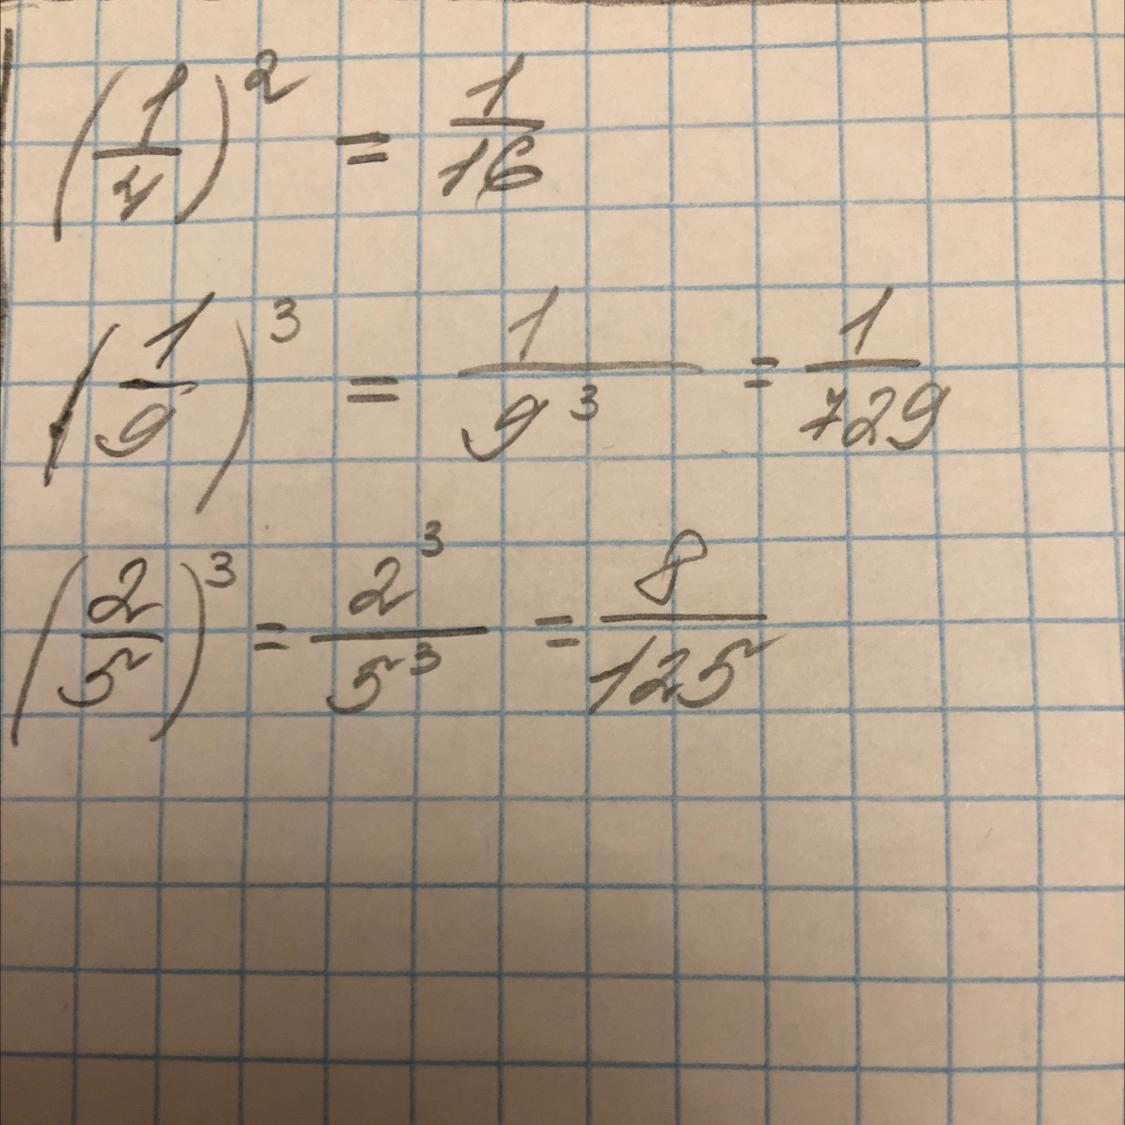 (1/4)² = 1/16
(1/9)³ = 1/9³ = 1/729
(2/5)³ = 2³/5³ = 8/125